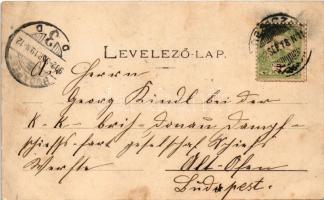 LEVELEZŐ-LAP.
Herrn
Georg Kindl bei der
K-K-briv-Donau Dampf-
schieffs-fart geselschaf Schieffs
Werfte
Alt-Ofen
Budapest.